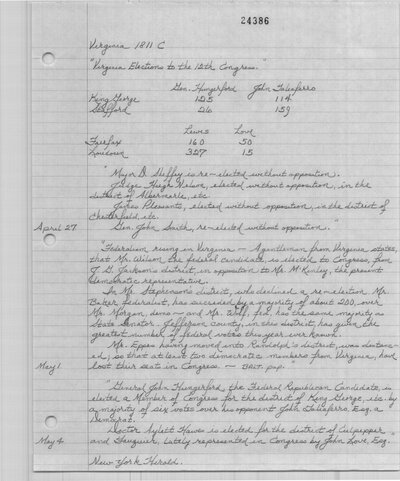 24386
Virginia 1811 C
"Virginia Elections to the 12th Congress."
Gen. Hungerford John Taliaferro
King George 125 114
Stafford 26 159
Lewis Love
Fairfax 160 50
Loudoun 327 15
"Major D. Sheffey is re-elected without opposition.
Judge Hugh Nelson, elected without opposition, in the
district of Albermarle, etc.
James Pleasants, elected without opposition, in the district of
Chesterfield, etc.
April 27 Gen. John Smith, re-elected without opposition."
"Federalism rising in Virginia — A gentleman from Virginia states,
that Mr. Wilson, the federal candidate is elected to Congress, from
J. G. Jackson's district, in opposition to Mr. McKinley, the present
democratic representative.
In Mr. Stephenson's district, who declined a re-election Mr.
Baker, federalist, has succeeded by a majority of about 200, over
Mr. Morgan, demo — and Mr. Wolf, fed. has the same majority as
State Senator. Jefferson County, in this district, has given the
greatest number of federal votes this year ever known.
Mr. Eppes having moved into Randolph's district, was distanc-
ed; so that at least two democratic members from Virginia, have
May 1 lost their seat in Congress. — Balt. pap.
"General John Hungerford, the Federal Republican Candidate, is
elected a Member of Congress for the district of King George, etc. by
a majority of six votes over his opponent John Taliaferro, Esq. a
Democrat.
Doctor Aylett Hawes is elected for the district of Culpepper
May 4 and Fauquier, lately represented in Congress by John Love, Esq."
New York Herald.